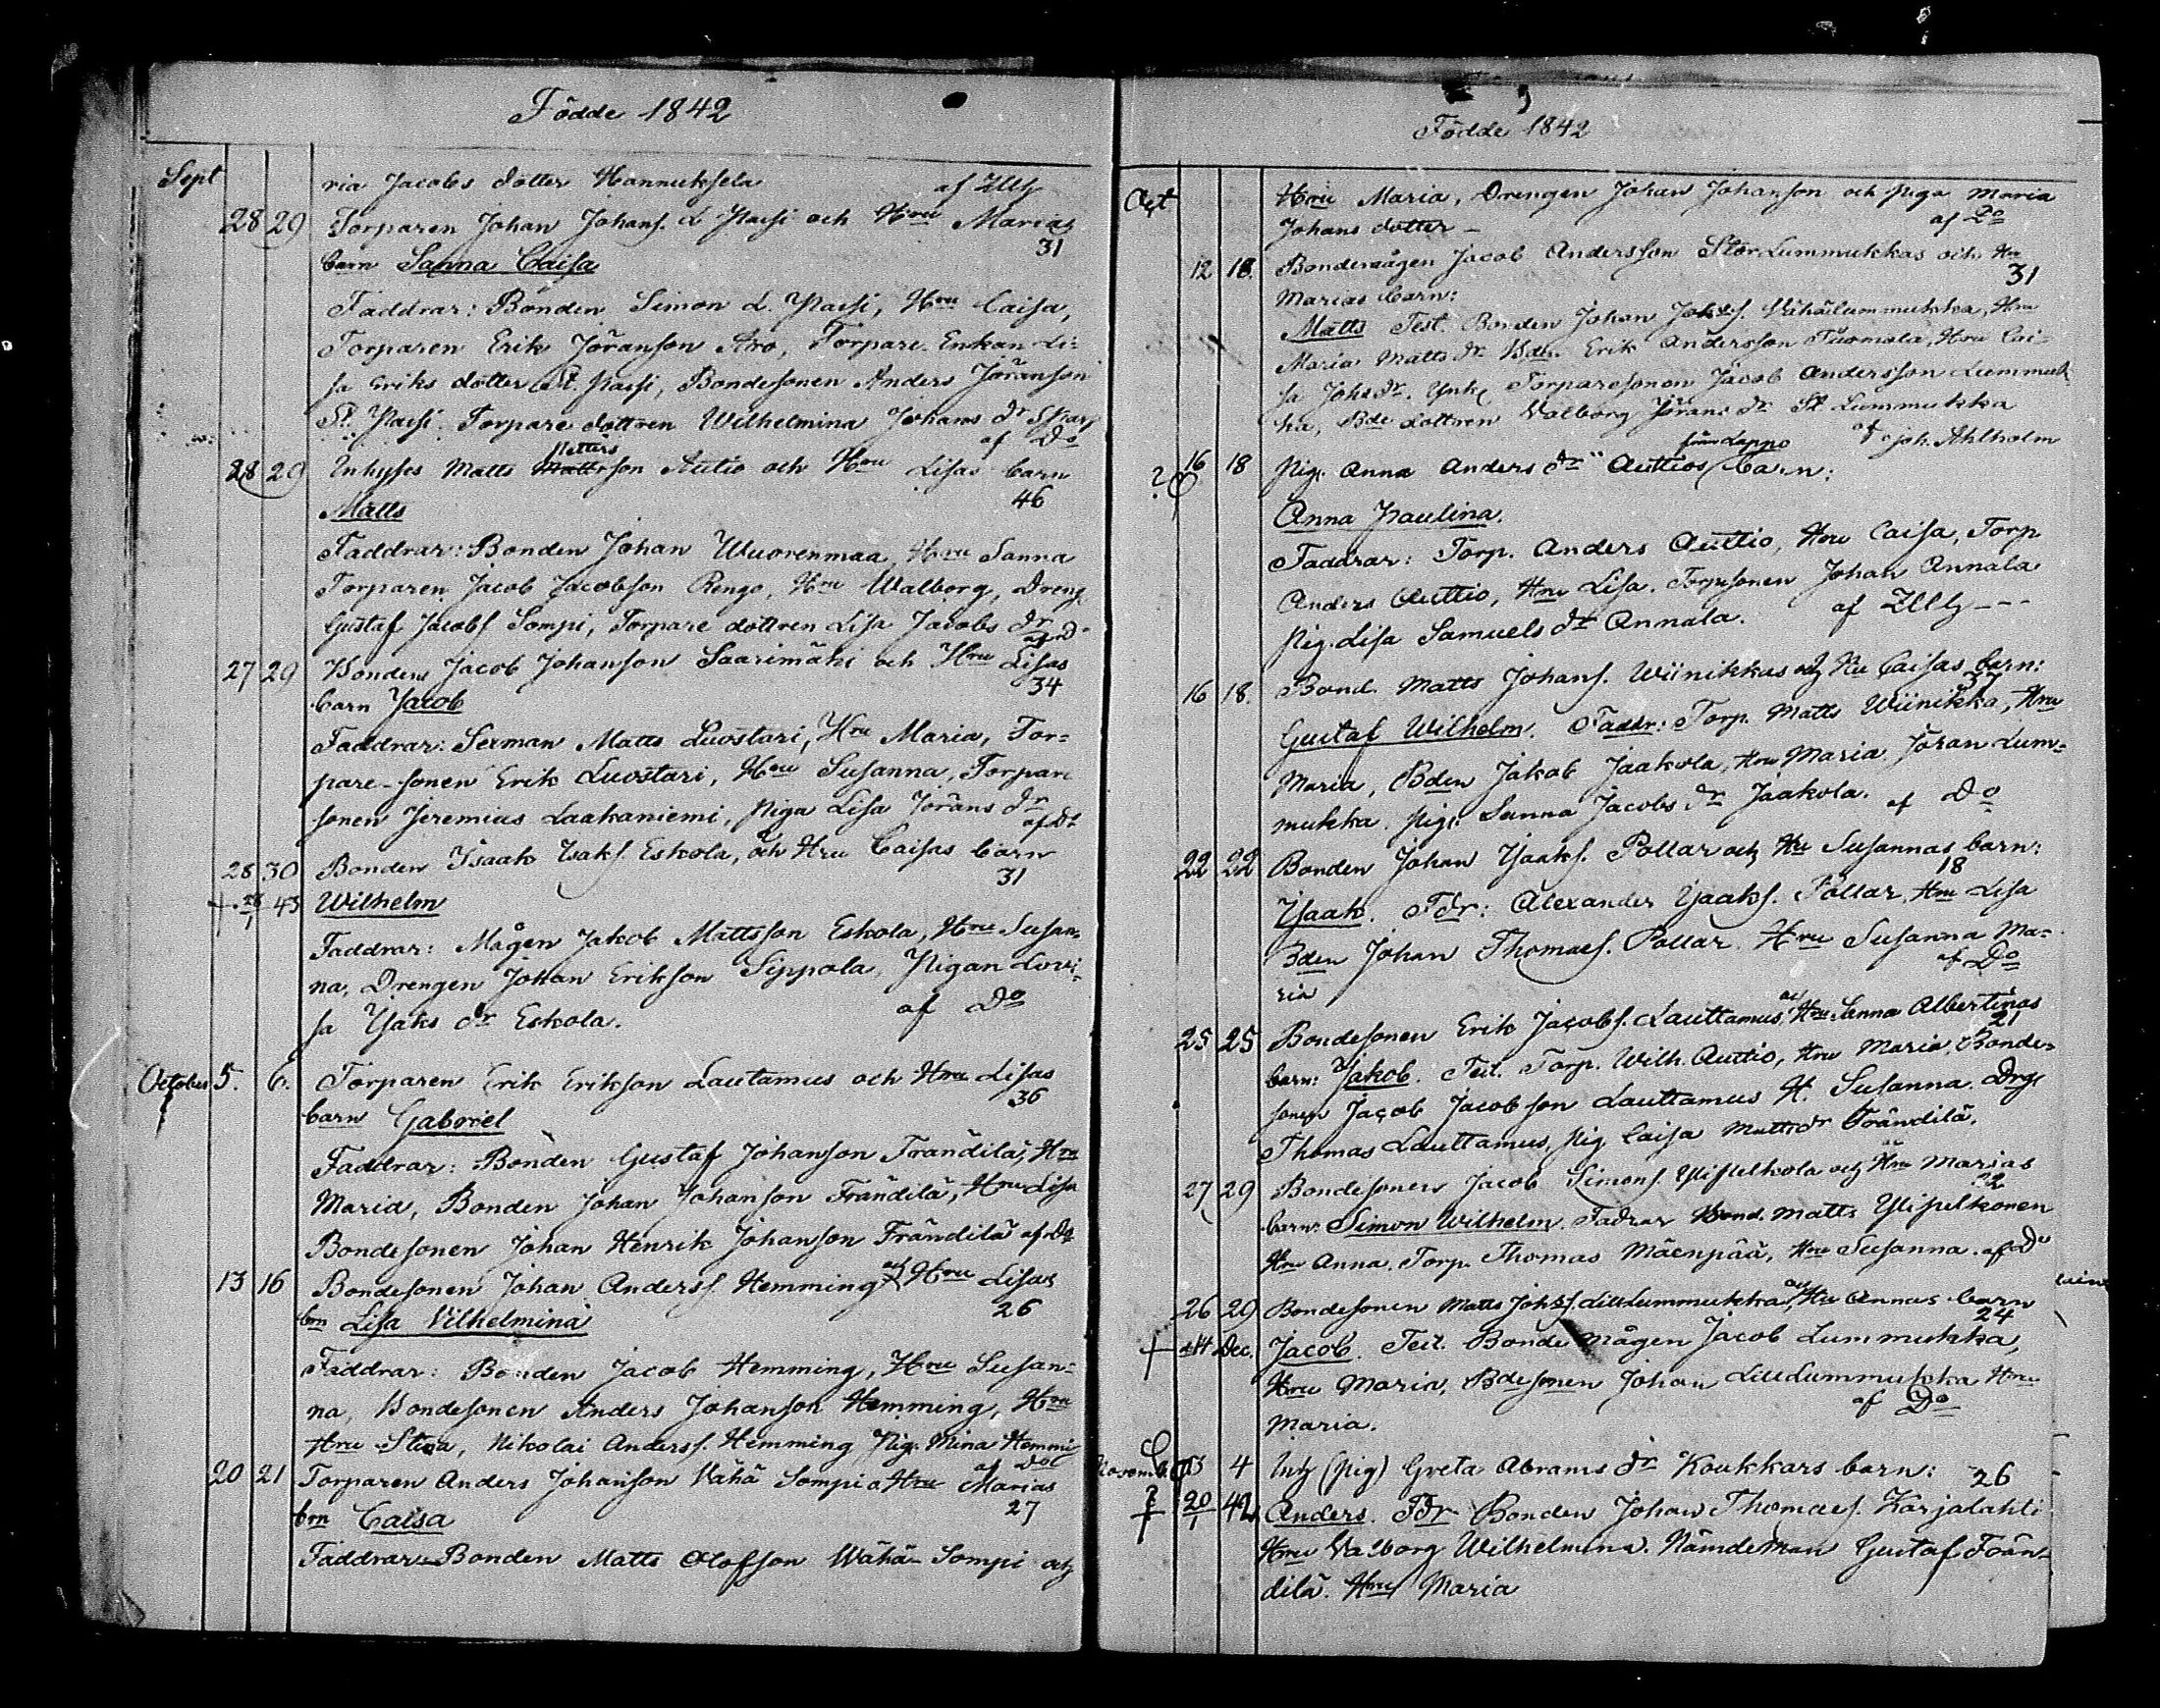 Födde 1842
Sept
ria Jacobs dotter Hannuksela af
28 29 Torparen Johan Johans. L. Passi och Hru Marias
barn Sanna Caisa 31
Faddrar: Bonden Simon L. Passi, Hru Caisa,
Torparen Erik Jöranson Aro, Torpare Enkan Li-
sa Eriks dotter St. Passi, Bondesonen Anders Jöranson
St. Passi. Torpare dottren Wilhelmina Johans dr
af Do
28 29 Inhyses Matts Petters Mattsson Autio och Hru Lisas barn
Matts 46
Faddrar: Bonden Johan Wuorenmaa, Hru Sanna
Torparen Jacob Jacobson Rengo, Hru Walborg, Dreng
Gustaf Jacobs Sompi, Torpare dottren Lisa Jacobs dr
af Do
27 29 Bonden Jacob Johanson Saarimäki och Hru Lisas
barn Jacob 34
Faddrar: Sexman Matts Luostari, Hru Maria, Tor-
pare-sonen Erik Luostari, Hru Susanna, Torpare
sonen Jeremias Laakaniemi, Piga Lisa Jörans dr
af Do
28 30 Bonden Isaak Isaks. Eskola, och Hru Caisas barn
+ 28/1 43 Wilhelm 31
Faddrar: Mågen Jakob Mattsson Eskola, Hru Susan-
na, Drengen Johan Erikson Sippola, Pigan Lovi-
sa Isaks dr Eskola. af Do
October 5. 6. Torparen Erik Erikson Lautamus och Hru Lisas
barn Gabriel 36
Faddrar: Bonden Gustaf Johanson Frändilä, Hru
Maria, Bonden Johan Johanson Frändilä, Hru Lisa
Bondesonen Johan Henrik Johanson Frändilä af Do
13 16 Bondesonen Johan Anderss. Hemming och Hru Lisas
brn Lisa Vilhelmina 26
Faddrar: Bonden Jacob Hemming, Hru Susan-
na, Bondesonen Anders Johanson Hemming, Hru
Hru Stina, Nikolai Anderss. Hemming Pig. Mina Hemmi
af Do
20 21 Torparen Anders Johanson Vähä Sompi o Hru Marias
brn Caisa 27
Faddrar Bonden Matts Olofson Wähä-Sompi och
Födde 1842
Oct
Hru Maria, Drengen Johan Johanson och Piga Maria
Johans dotter – af Do
12 18. Bondemågen Jacob Andersson Stor Lummukkas och Hru
Marias barn: 31
Matts Test. Bonden Johan Johs s. Vähälummukka, Hru
Maria Matts dr Bden Erik Andersson Tuomala, Hru Cai-
sa Johs dr. Torparesonen Jacob Andersson Lummuk
ka, Bde dottren Valborg Jörans dr St. Lummukka
af joh. Ahlholm
16 18 Pig. Anna Anders dr Auttios från Lappo barn:
?
Anna Paulina.
Faddrar: Torp. Anders Auttio, Hru Caisa, Torp
Anders Auttio, Hru Lisa. Torpesonen Johan Annala
Pig. Lisa Samuels dr Annala. af
16 18. Bond. Matts Johans. Wiinikkas och Hu Caisas barn:
37
Gustaf Wilhelm. Faddr: Torp. Matts Wiinikka, Hru
Maria, Bden Jakob Jaakola, Hru Maria. Jöran Lum-
mukka. Pig. Sanna Jacobs dr Jaakola. af Do
22 22 Bonden Johan Isaaks. Pollar och Hu Susannas barn:
18
Isaak. Fdr: Alexander Isaaks. Pollar, Hru Lisa
Bden Johan Thomaes. Pollar. Hru Susanna Ma-
ria af Do
25 25 Bondesonen Erik Jacobs. Lauttamus, och Hru Sanna Albertinas
21
barn: Jakob. Test. Torp. Wilh. Auttio, Hru Maria, Bonde-
sonen Jacob Jacobson Lauttamus H. Susanna. Drg
Thomas Lauttamus, Pig Caisa Matts dr Frändilä.
27 29 Bondesonen Jacob Simons. och Hru Marias
22
barn: Simon Wilhelm. Fadrar Bond. Matts Ylipelkonen
Hru Anna. Torp. Thomas Mäenpää, Hru Susanna. af Do
26 29 Bondesonen Matts Johs s. LillLummukka, och Hru Annas barn
24
+ d 14 Dec. Jacob. Test. Bonde mågen Jacob Lummukka,
Hru Maria, Bdesonen Johan LillLummukka Hru
Maria. af Do
Novemb. 3 4 Inh (Pig) Greta Abrams dr Koukkars barn: 26
? + 20/1 42 Anders. Fdr Bonden Johan Thomaes. Karjalahti
Hru Valborg Wilhelmina. Nämdeman Gustaf Frän-
dilä. Hru Maria